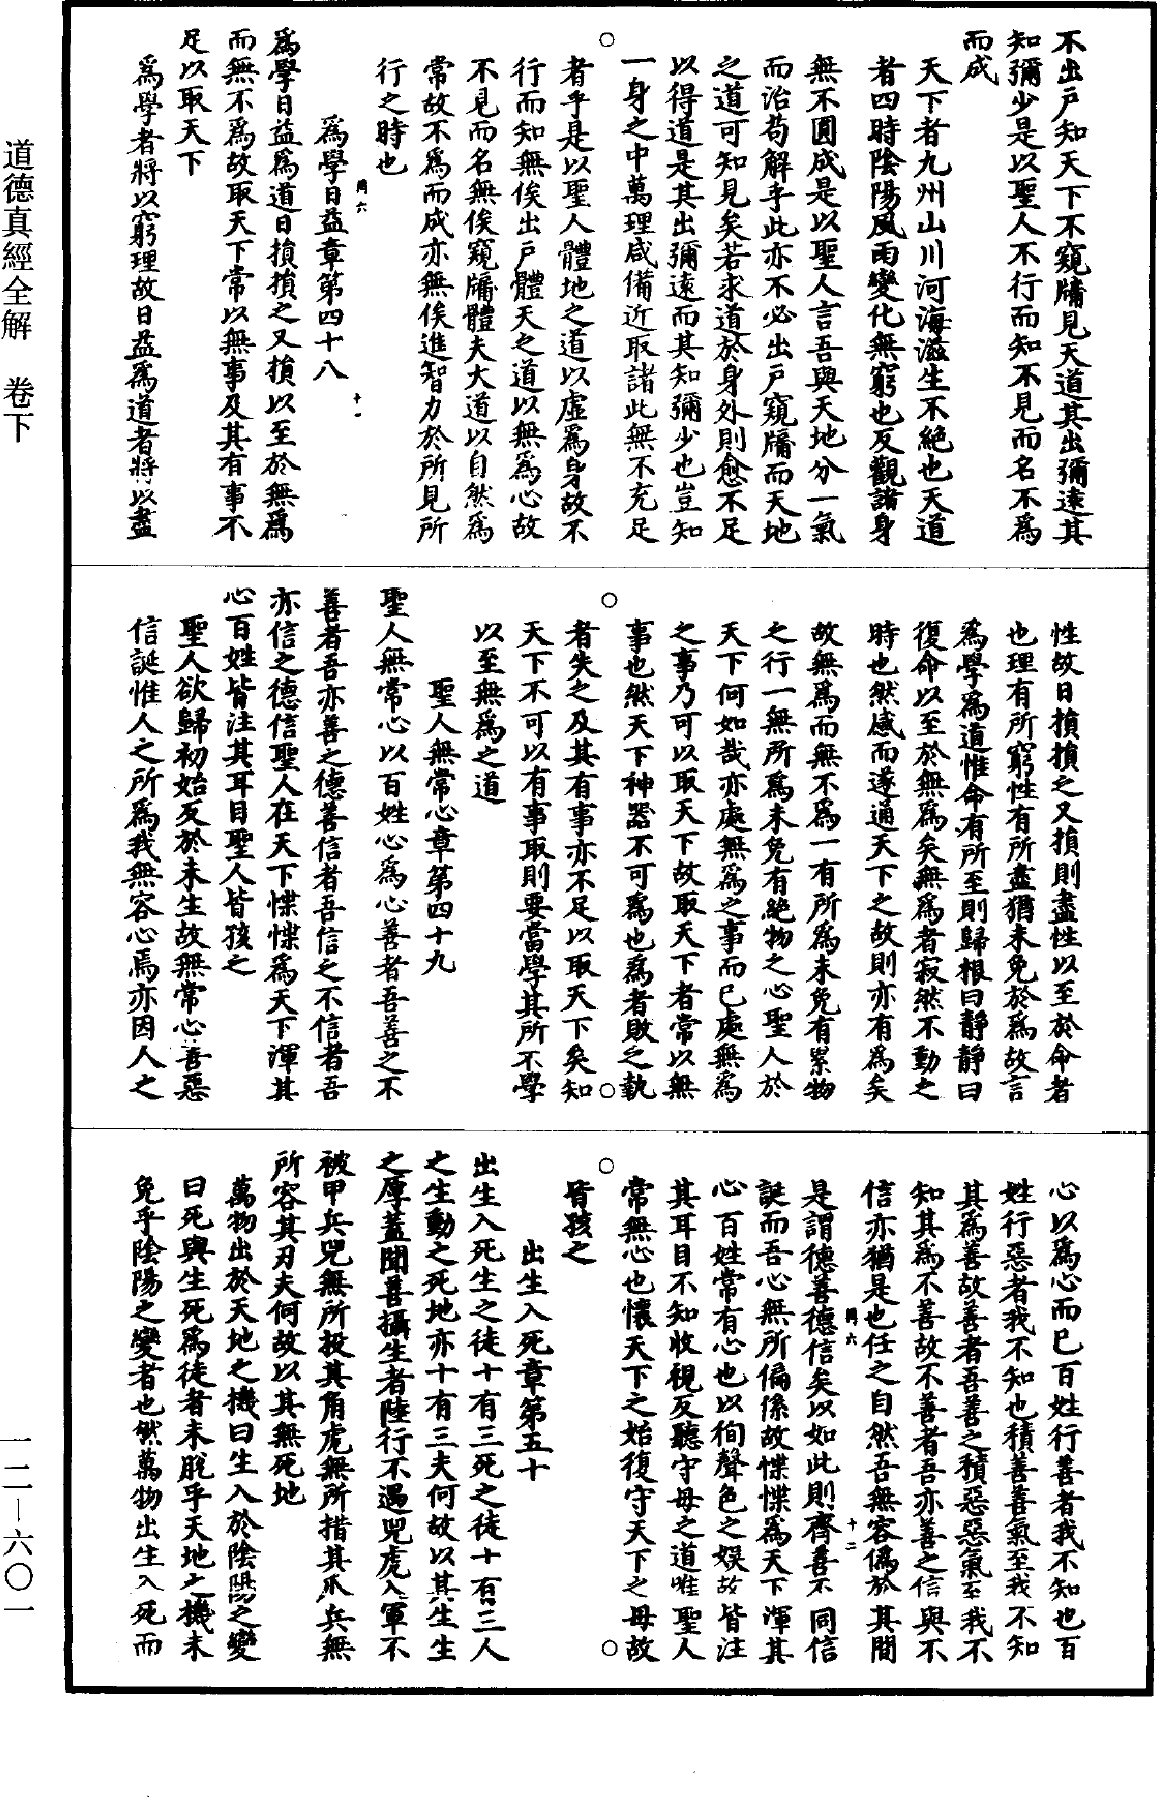 不出戶知天下不窺牖見天道其出彌遠其
知彌少是以聖人不行而知不見而名不爲
而成
天下者九州山川河海滋生不絕也天道
者四時陰陽風雨變化無窮也反觀諸身
無不圓成是以聖人言吾與天地分一氣
而治苟解乎此亦不必出戶窺牖而天地
之道可知見矣若求道於身外則愈不足
以得道是其出彌遠而其知彌少也豈知
一身之中萬理咸備近取諸此無不充足
者乎是以聖人體地之道以虛爲身故不
行而知無俟出戶體天之道以無爲心故
不見而名無俟窺牖體夫大道以自然爲
常故不爲而成亦無俟進智力於所見所
行之時也
爲學日益章第四十八
爲學日益爲道日損損之又損以至於無爲
而無不爲故取天下常以無事及其有事不
足以取天下
爲學者將以窮理故日益爲道者將以盡
性故日損損之又損則盡性以至於命者
也理有所窮性有所盡猶未免於爲故言
爲學爲道惟命有所至則歸根曰靜靜曰
復命以至於無爲矣無爲者寂然不動之
時也然感而遂通天下之故則亦有爲矣
故無爲而無不爲一有所爲未免有累物
之行一無所爲未免有絕物之心聖人於
天下何如哉亦處無爲之事而已處無爲
之事乃可以取天下故取天下者常以無
事也然天下神器不可爲也爲者敗之執
者失之及其有事亦不足以取天下矣知
天下不可以有事取則要當學其所不學
以至無爲之道
聖人無常心章第四十九
聖人無常心以百姓心爲心善者吾善之不
善者吾亦善之德善信者吾信之不信者吾
亦信之德信聖人在天下惵惵爲天下渾其
心百姓皆注其耳目聖人皆孩之
聖人欲歸初始反於未生故無常心善惡
信誕惟人之所爲我無容心焉亦因人之
心以爲心而已百姓行善者我不知也百
姓行惡者我不知也積善善氣至我不知
其爲善故善者吾善之積惡惡氣至我不
知其爲不善故不善者吾亦善之信與不
信亦猶是也任之自然吾無容僞於其間
是謂德善德信矣以如此則齊善不同信
誕而吾心無所偏係故惵惵爲天下渾其
心百姓常有心也以徇聲色之娛故皆注
其耳目不知收視反聽守母之道唯聖人
常無心也懷天下之始復守天下之母故
皆孩之
出生入死章第五十
出生入死生之徒十有三死之徒十有三人
之生動之死地亦十有三夫何故以其生生
之厚蓋聞善攝生者陸行不遇兕虎入軍不
被甲兵兕無所投其角虎無所措其爪兵無
所容其刃夫何故以其無死地
萬物出於天地之機曰生入於陰陽之變
曰死與生死爲徒者未脫乎天地之機未
免乎陰陽之變者也然萬物出生入死而
道德真經全解 卷下
一二—六〇一